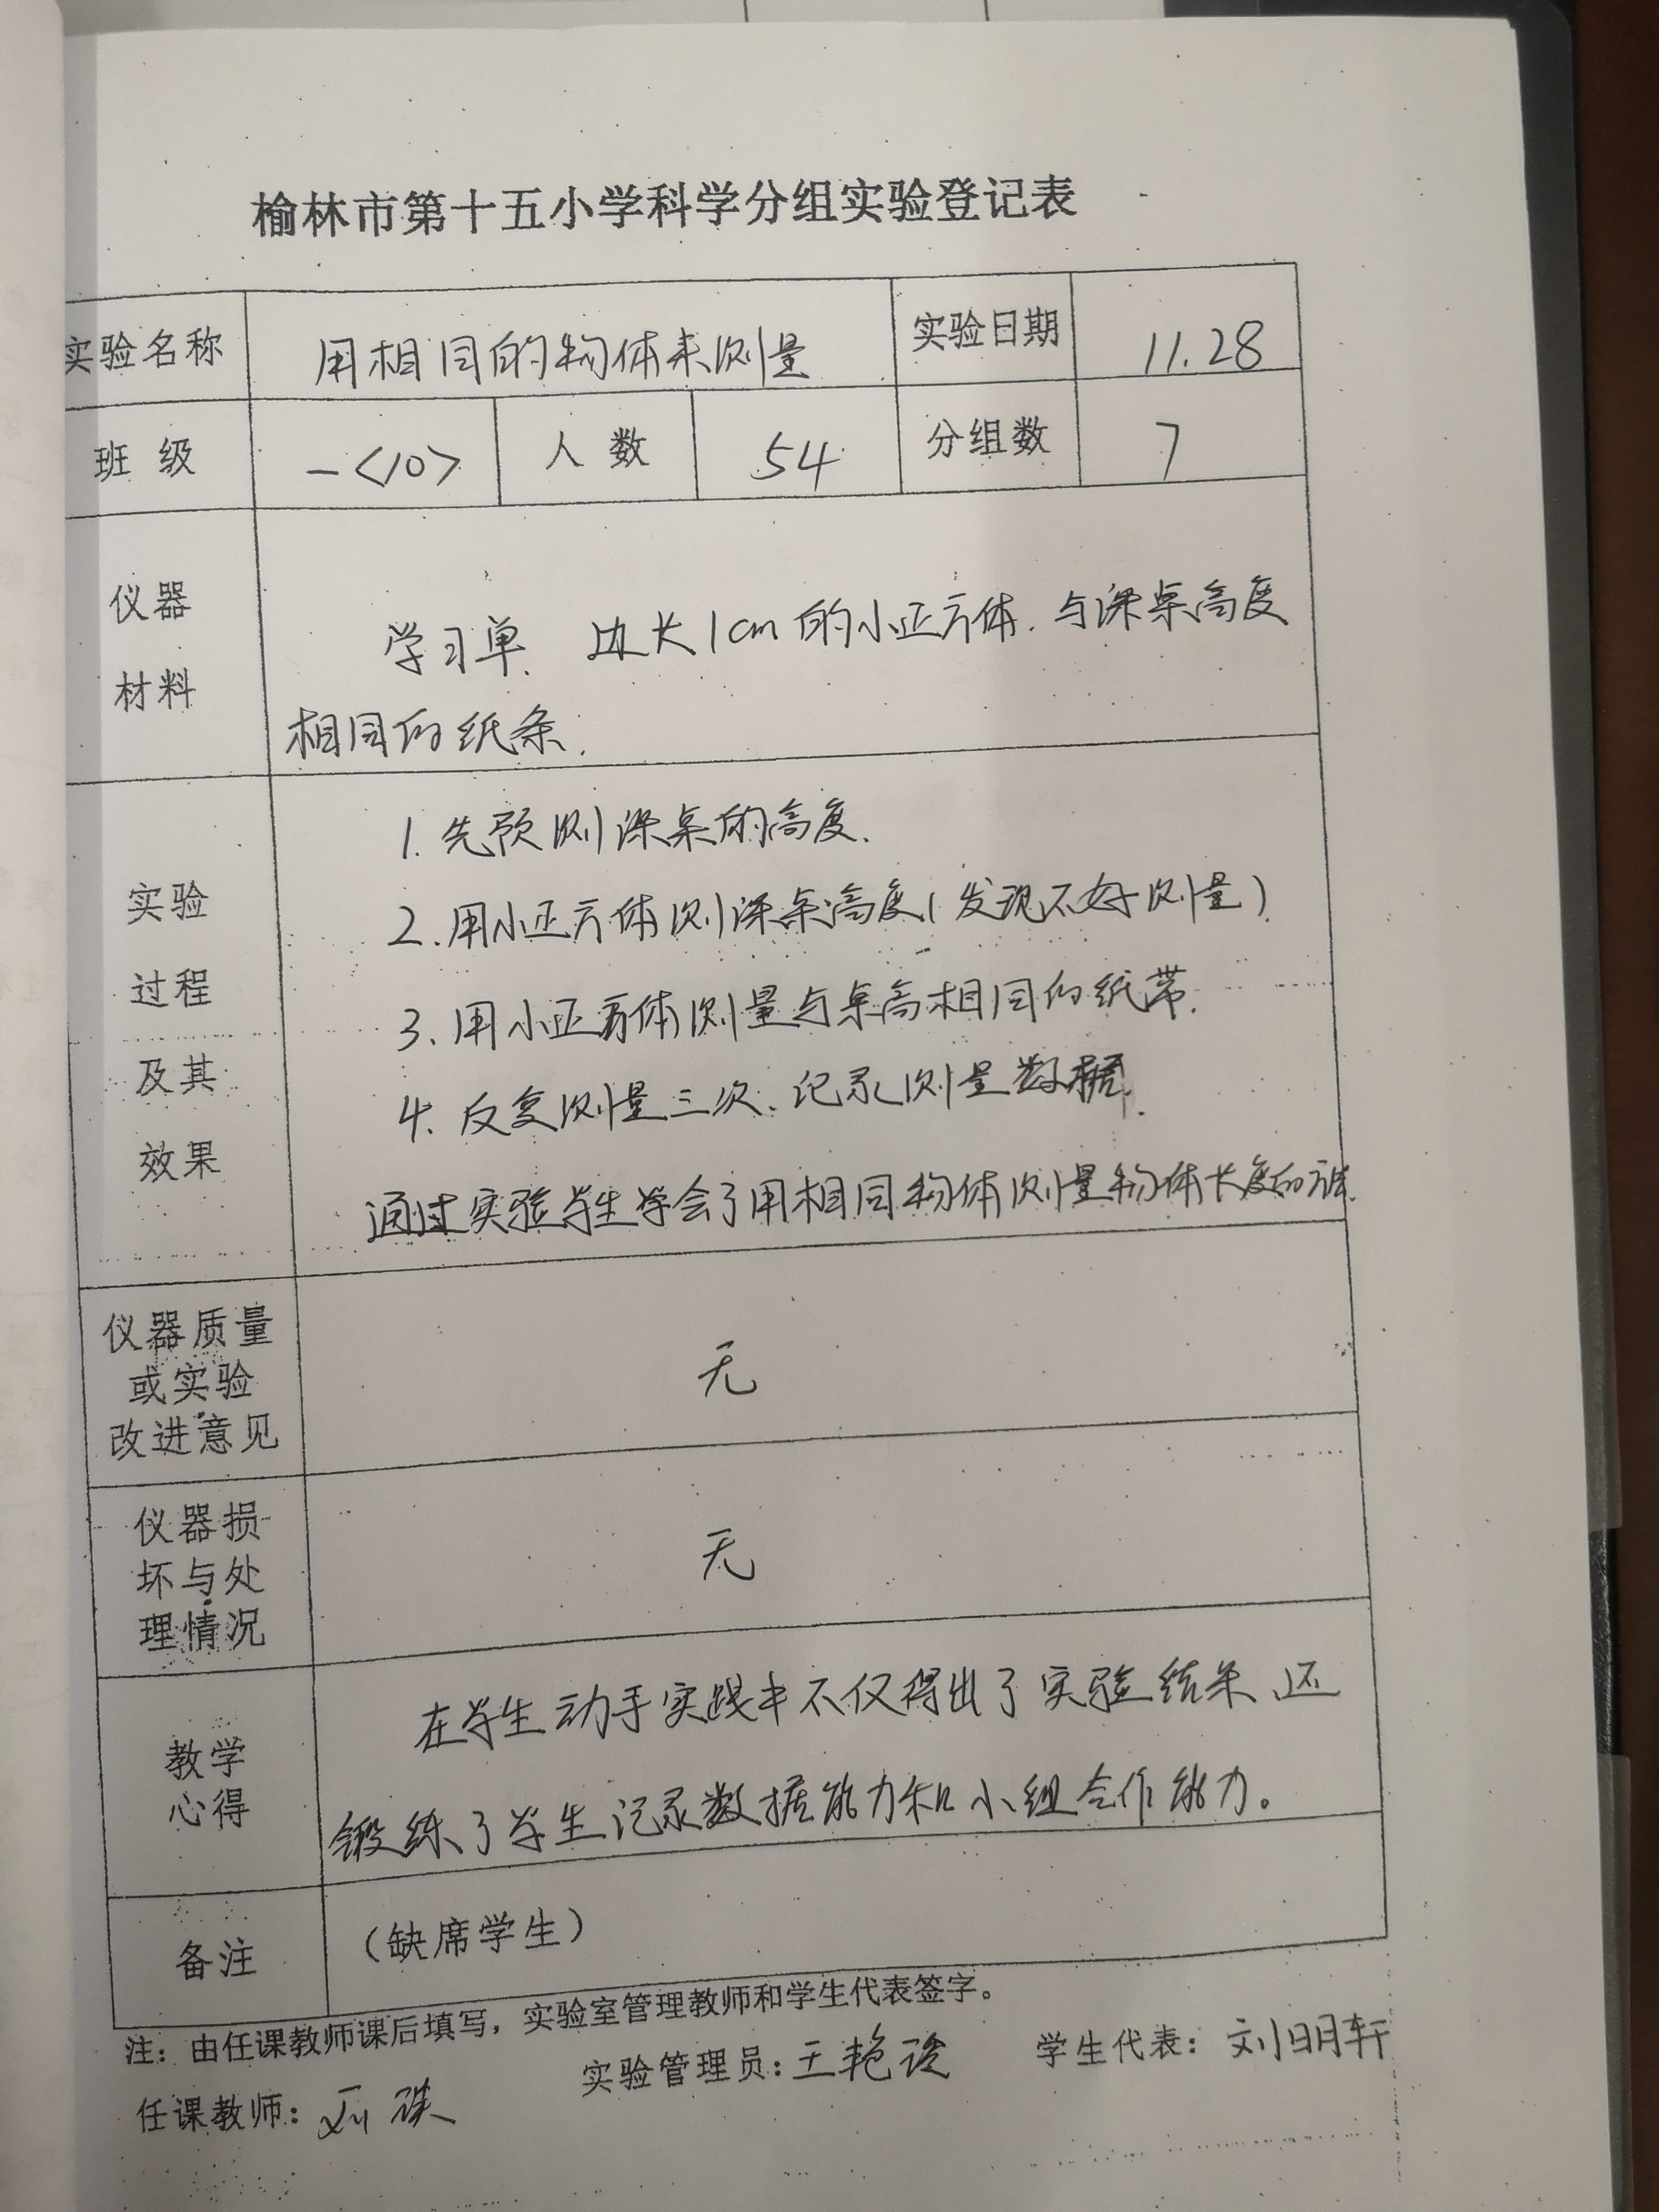 榆林市第十五小学科学分组实验登记表
实验名称 用相同的物体来测量 实验日期 11.28
班 级 一<10> 人 数 54 分组数 7
仪器
材料
学习单、边长1cm的小正方体、与课桌高度
相同的纸条.
实验
过程
及其
效果
1. 先预测课桌的高度.
2. 用小正方体测课桌高度(发现不好测量).
3. 用小正方体测量与桌高相同的纸带.
4. 反复测量三次、记录测量数据.
通过实验学生学会了用相同物体测量物体长度的方法.
仪器质量
或实验
改进意见
无
仪器损
坏与处
理情况
无
教学
心得
在学生动手实践中不仅得出了实验结果、还
锻练了学生记录数据能力和小组合作能力。
备注 （缺席学生）
注：由任课教师课后填写，实验室管理教师和学生代表签字。
任课教师： 实验管理员：王艳 学生代表：刘明轩